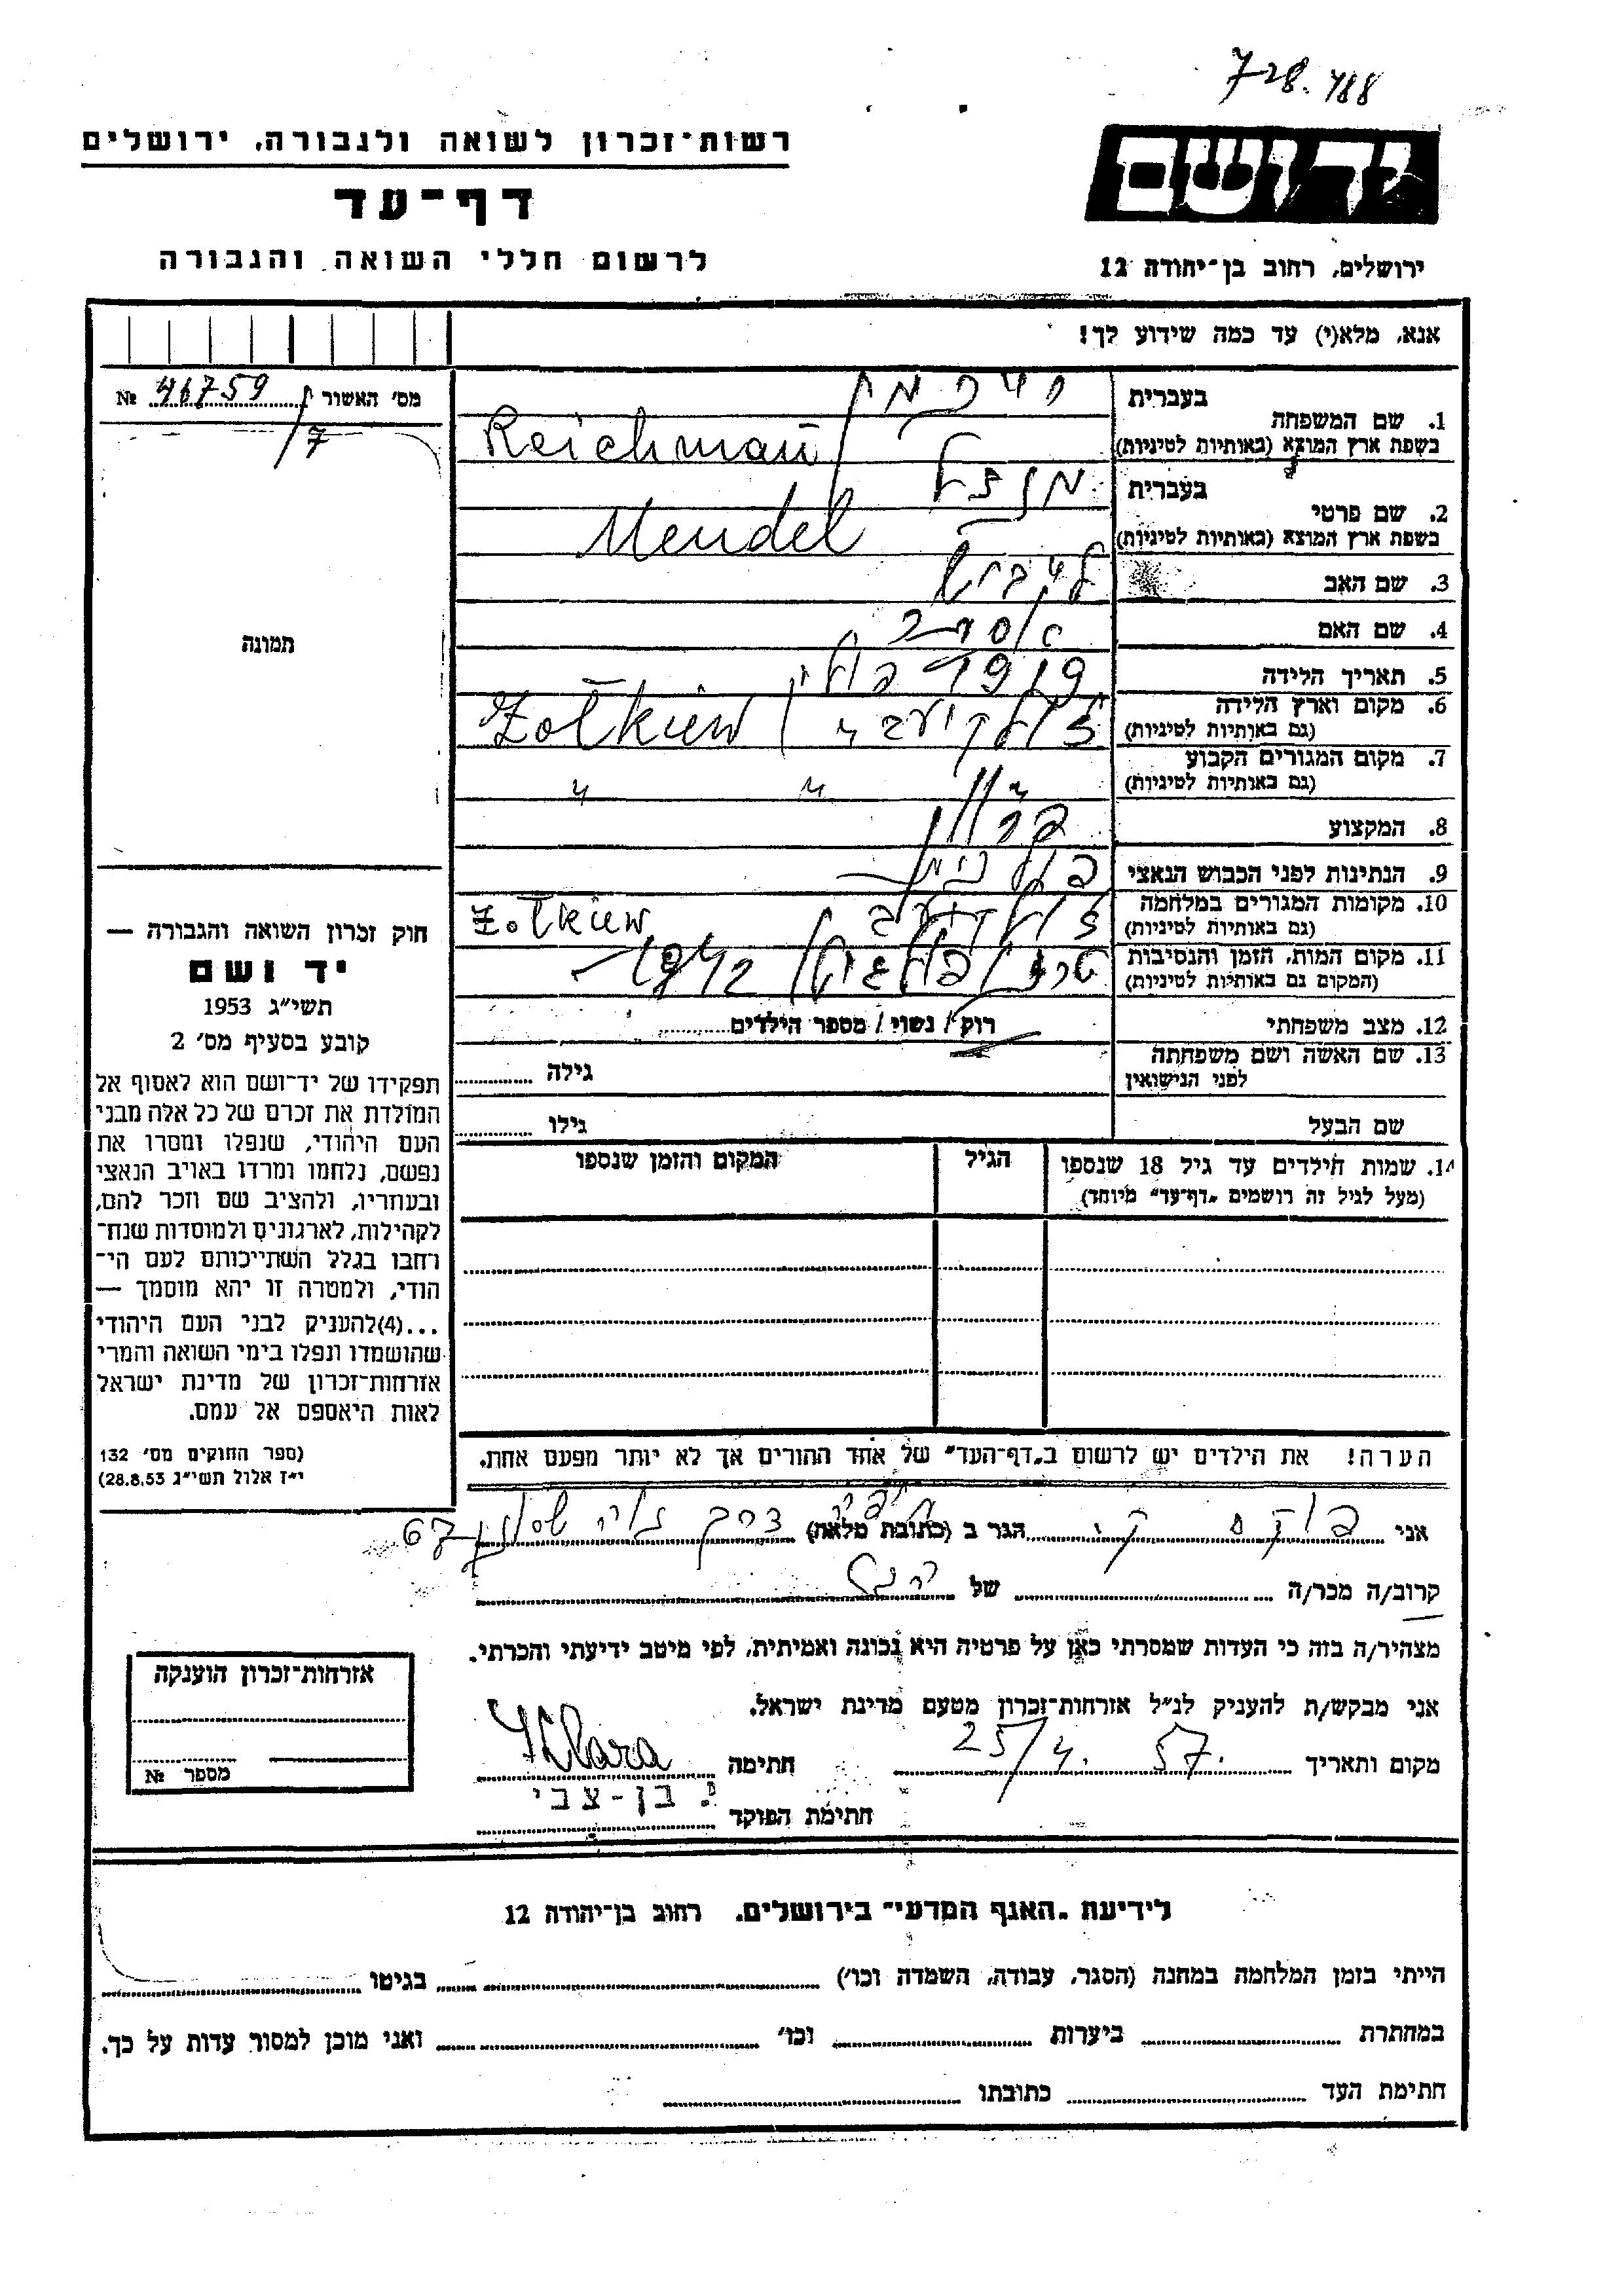 728.788
רשות־זכרון לשואה ולגבורה, ירושלים
יד ושם
דף־עד
לרשום חללי השואה והגבורה
ירושלים, רחוב בן־יהודה 12
אנא, מלא(י) עד כמה שידוע לך!
מס' האשור 46759 №
7
1. שם המשפחה
בעברית
בשפת ארץ המוצא (באותיות לטיניות) Reichman
2. שם פרטי
בעברית מנדל
בשפת ארץ המוצא (באותיות לטיניות) Mendel
3. שם האב
4. שם האם
5. תאריך הלידה 1919
6. מקום וארץ הלידה
(גם באותיות לטיניות) Żołkiew
7. מקום המגורים הקבוע
(גם באותיות לטיניות) " " "
8. המקצוע
9. הנתינות לפני הכבוש הנאצי
10. מקומות המגורים במלחמה
(גם באותיות לטיניות) Żołkiew
11. מקום המות, הזמן והנסיבות
(המקום גם באותיות לטיניות) 1942
12. מצב משפחתי רוק / נשוי / מספר הילדים
13. שם האשה ושם משפחתה
לפני הנישואין גילה
שם הבעל גילו
14. שמות הילדים עד גיל 18 שנספו
(מעל לגיל זה רושמים „דף־עד" מיוחד)
הגיל
המקום והזמן שנספו
תמונה
חוק זכרון השואה והגבורה —
יד ושם
תשי"ג 1953
קובע בסעיף מס' 2
תפקידו של יד־ושם הוא לאסוף אל
המולדת את זכרם של כל אלה מבני
העם היהודי, שנפלו ומסרו את
נפשם, נלחמו ומרדו באויב הנאצי
ובעוזריו, ולהציב שם וזכר להם,
לקהילות, לארגונים ולמוסדות שנח־
רחבו בגלל השתייכותם לעם הי־
הודי, ולמטרה זו יהא מוסמך —
...(4)להעניק לבני העם היהודי
שהושמדו ונפלו בימי השואה והמרי
אזרחות־זכרון של מדינת ישראל
לאות היאספם אל עמם.
(ספר החוקים מס' 132
י"ז אלול תשי"ג 28.8.53)
הערה! את הילדים יש לרשום ב„דף־העד" של אחד ההורים אך לא יותר מפעם אחת.
אני פוקס ק. הגר ב (כתובת מלאה) חיפה דרך 67
קרוב/ה מכר/ה של הנ"ל
מצהיר/ה בזה כי העדות שמסרתי כאן על פרטיה היא נכונה ואמיתית, לפי מיטב ידיעתי והכרתי.
אני מבקש/ת להעניק לנ"ל אזרחות־זכרון מטעם מדינת ישראל.
מקום ותאריך 25/4. 57. חתימה Klara
חתימת הפוקד י. בן-צבי
אזרחות־זכרון הוענקה
מספר №
לידיעת „האגף המדעי" בירושלים, רחוב בן־יהודה 12
הייתי בזמן המלחמה במחנה (הסגר, עבודה, השמדה וכו') בגיטו
במחתרת ביערות וכו' ואני מוכן למסור עדות על כך.
חתימת העד כתובתו